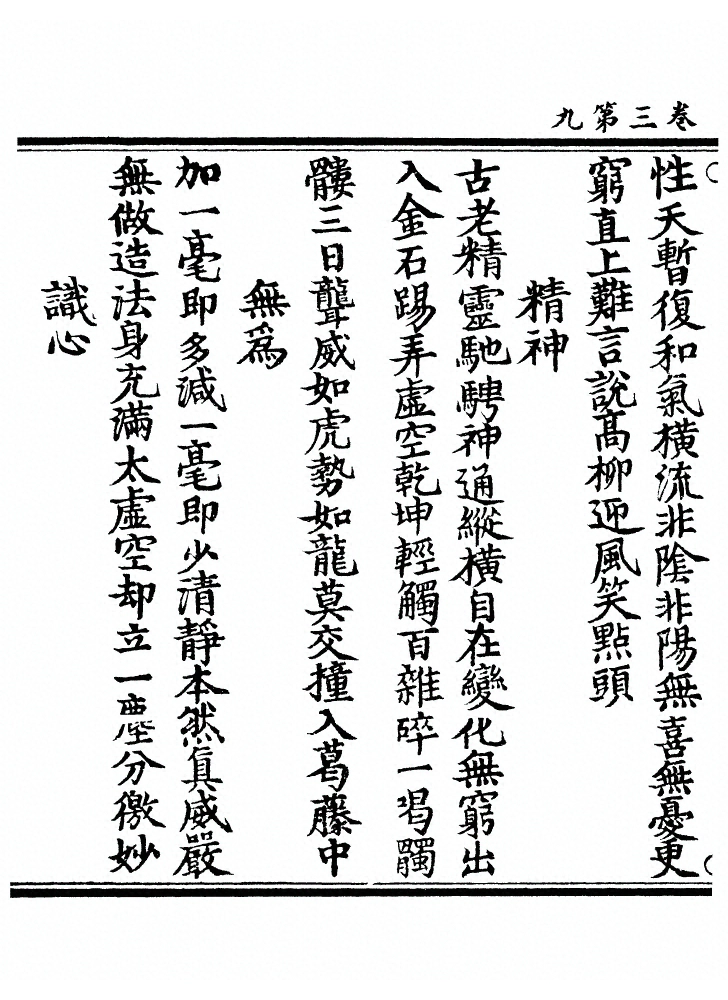 卷三第九
性天暫復和氣橫流非陰非陽無喜無憂更
窮直上難言說高柳迎風笑點頭
精神
古老精靈馳騁神通縱橫自在變化無窮出
入金石踢弄虛空乾坤輕觸百雜碎一喝髑
髏三日聾威如虎勢如龍莫交撞入葛藤中
無為
加一毫即多減一毫即少清靜本然真威嚴
無做造法身充滿太虛空却立一塵分徼妙
識心